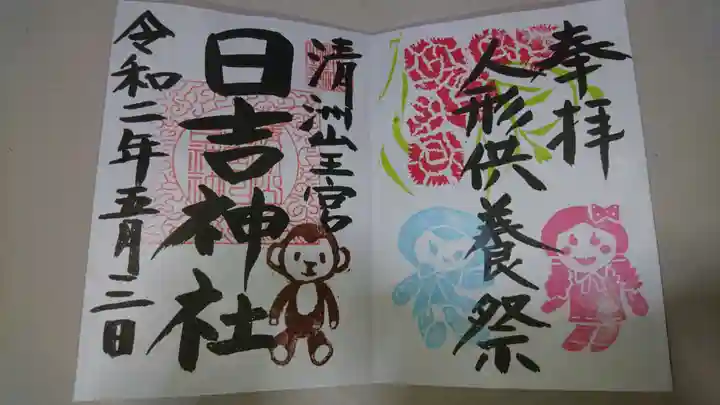 奉拝
人形供養祭
清洲山王宮
日吉神社
令和二年五月三日